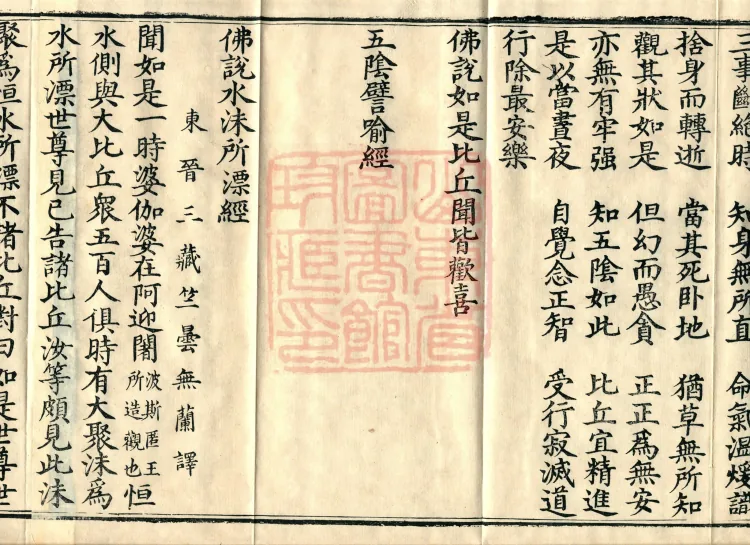 三事斷絕時 知身無所直 命氣溫煖識
捨身而轉逝 當其死臥地 猶草無所知
觀其狀如是 但幻而愚貪 正正為無安
亦無有牢强 知五陰如此 比丘宜精進
是以當晝夜 自覺念正智 受行寂滅道
行除最安樂
佛說如是比丘聞皆歡喜
五陰譬喻經
佛說水沫所漂經
東晉三藏竺曇無蘭譯
聞如是一時婆伽婆在阿迎闍波斯匿王所造觀也恒
水側與大比丘眾五百人俱時有大聚沫為
水所漂世尊見已告諸比丘汝等頗見此沫
聚為恒水所漂不諸比丘對曰如是世尊世